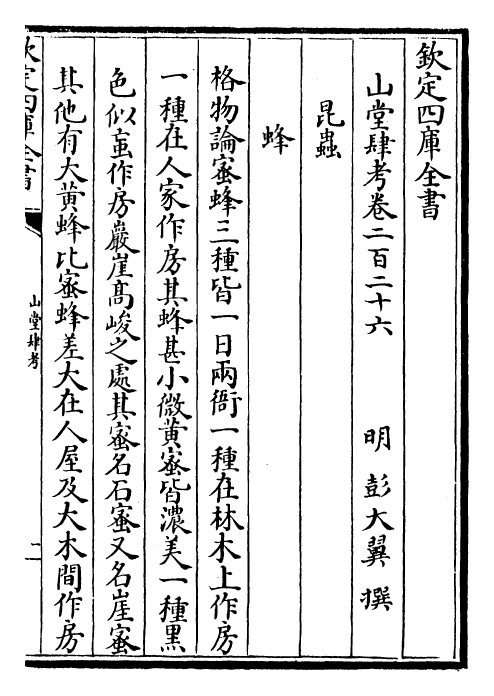 欽定四庫全書
山堂肆考卷二百二十六　明　彭大翼　撰
昆蟲
蜂
格物論蜜蜂三種皆一日兩衙一種在林木上作房
一種在人家作房其蜂甚小微黃蜜皆濃美一種黑
色似䖟作房巖崖高峻之處其蜜名石蜜又名崖蜜
其他有大黃蜂比蜜蜂差大在人屋及大木間作房
欽定四庫全書
山堂肆考
二